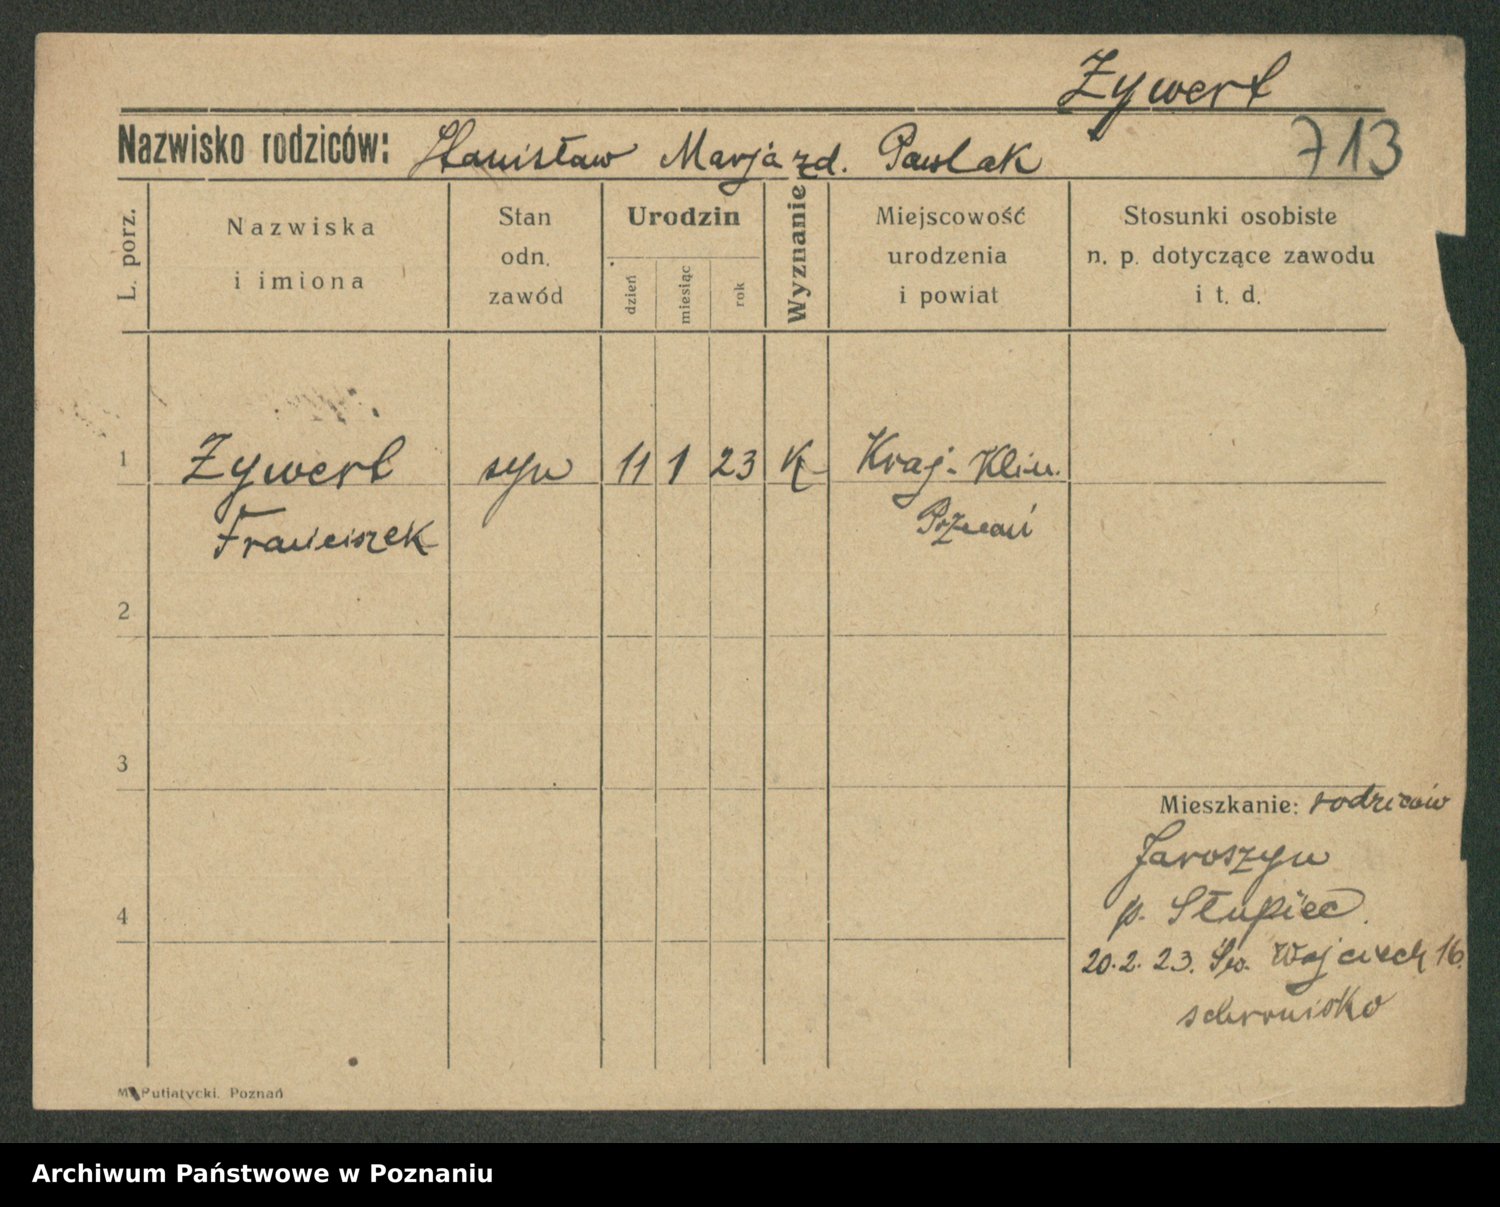 Zywert
Nazwisko rodziców: Stanisław Marja zd. Pawlak
713
L. porz.
Nazwiska
i imiona
Stan
odn.
zawód
Urodzin
dzień
miesiąc
rok
Wyznanie
Miejscowość
urodzenia
i powiat
Stosunki osobiste
n. p. dotyczące zawodu
i t. d.
1 Zywert syn 11 1 23 K Kraj. Klin.
Franciszek Poznań
2
3
Mieszkanie: rodziców
Jaroszyn
4
p. Słupiec
20.2.23. Św. Wojciech 16.
schronisko
M. Putiatycki. Poznań
Archiwum Państwowe w Poznaniu